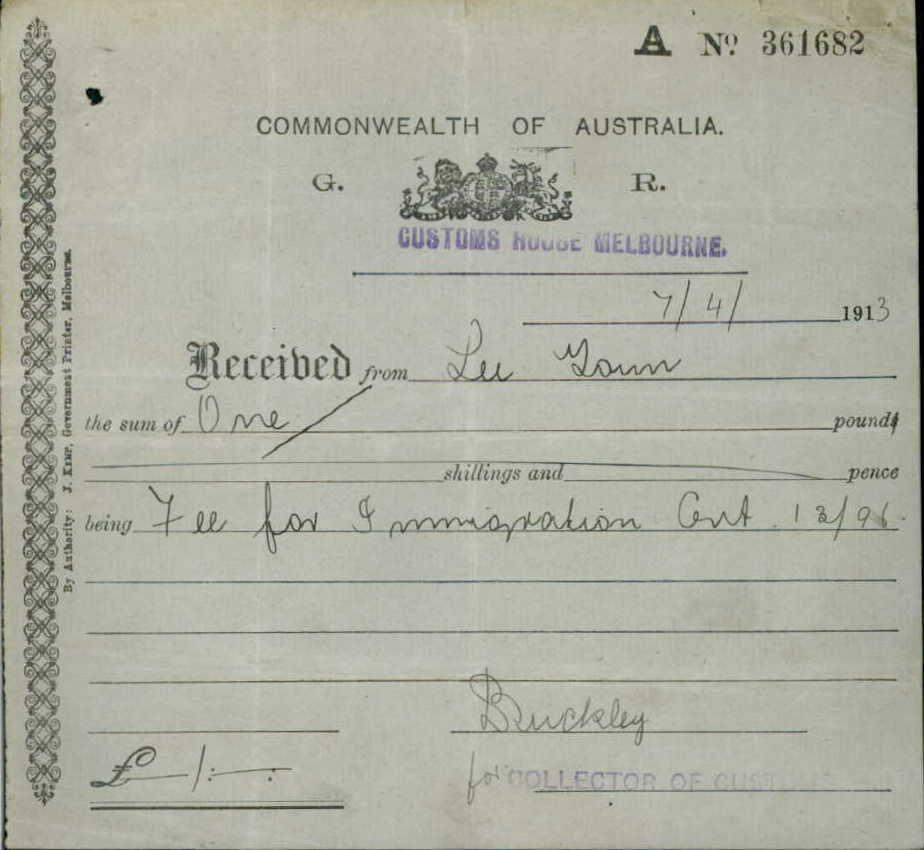 A Nº 361682
COMMONWEALTH OF AUSTRALIA.
G. R.
CUSTOMS HOUSE MELBOURNE.
7/4/1913
Received from Lee
the sum of One pounds
shillings and pence
being Fee for Immigration Cert. 13/96.
Buckley
£ 1:–:
for COLLECTOR OF CUSTOMS
By Authority: J. KEMP, Government Printer, Melbourne.